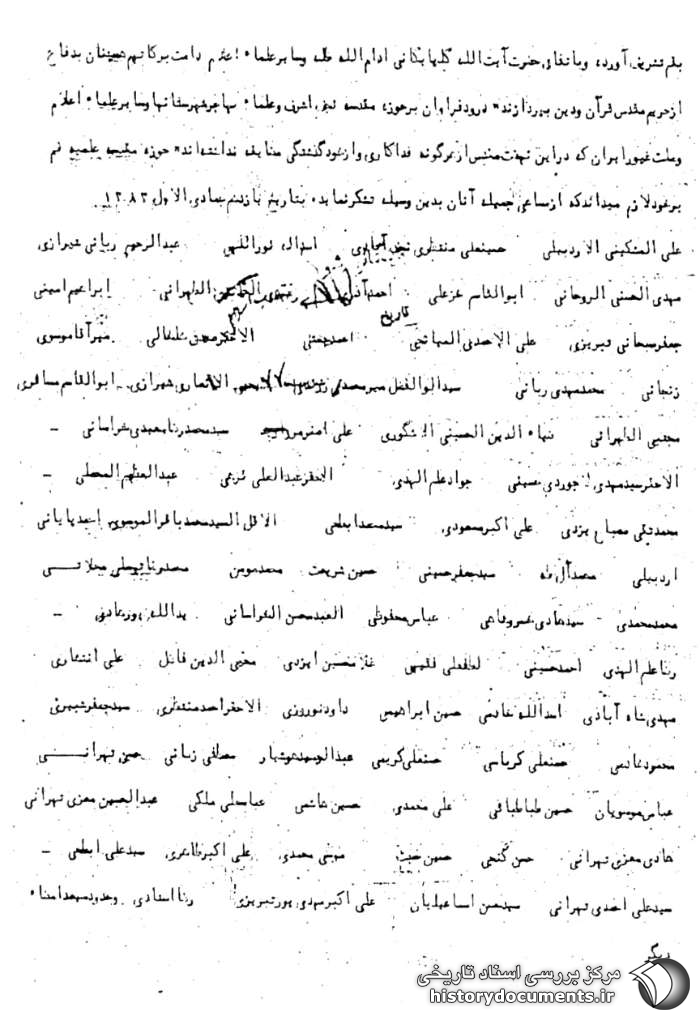 بقم تشریف آورده وباتفاق حضرت آیت الله گلپایگانی ادام الله ظله وسایر علماء اعلام دامت برکاتهم همچنان بدفاع
ازحریم مقدس قرآن ودین بپردازند» درود فراوان برحوزه مقدسه نجف اشرف وعلماء مهاجر شهرستانها وسایر علماء اعلام
وملت غیور ایران که دراین نهضت مقدس ازهرگونه فداکاری وازخودگذشتگی مضایقه نداشته‌اند» حوزه مقدسه علمیه قم
برخود لازم میداند که ازمساعی جمیله آنان بدین وسیله تشکرنماید» بتاریخ یازدهم جمادی الاول ۱۳۸۳
علی المشکینی الاردبیلی حسینعلی منتظری نجف آبادی اسدالله نورالهی عبدالرحیم ربانی شیرازی
مهدی الحسنی الروحانی ابوالقاسم خزعلی احمد آذری الطهرانی ابراهیم امینی
تاریخ
جعفر سبحانی تبریزی علی الاحمدی المیانجی احمد جنتی خلخالی میرآقا موسوی
زنجانی محمد مهدی ربانی سید ابوالفضل میرمحمدی الانصاری شیرازی ابوالقاسم مسافری
مجتبی الطهرانی بهاء الدین الحسینی علی اصغر سید محمدرضا سعیدی خراسانی -
الاحقر سید مهدی لاجوردی حسینی جواد علم الهدی الاحقر عبدالعلی قرهی عبدالعظیم المحصلی -
محمد تقی مصباح یزدی علی اکبر مسعودی سید محمد ابطحی الاقل السید محمد باقر الموسوی احمد پایانی
اردبیلی محمد آل طه سید جعفر حسینی حسین شریعت محمد مومن محمدرضا توسلی محلاتـی
محمد محمدی سید هادی خسروشاهی عباس محفوظی العبد محسن الخراسانی یدالله پورهادی -
رضا علم الهدی احمد حسینی لطفعلی فقیهی غلامحسین ایزدی محیی الدین فاضل علی افتخاری
مهدی شاه آبادی اسدالله خادمی حسین ابراهیمی داود نوروزی الاحقر احمد منتظری سید جعفر شبیری
محمود خادمی حسنعلی کرباسی حسنعلی کریمی عبدالوحید هوشیار مصطفی زمانی حسن تهرانـــی
عباس موسویان حسین طباطبائی علی محمدی حسین هاشمی عباسعلی ملکی عبدالحسین معزی تهرانی
هادی معزی تهرانی حسن گنجی حسین مجتبی محمدی علی اکبر طاهری سید علی ابطحی -
سید علی احمدی تهرانی سید حسن اسماعیلیان علی اکبر مهدی پور تبریزی رضا استادی وحدود سیصد امضاء
دیگر
مرکز بررسی اسناد تاریخی
historydocuments.ir